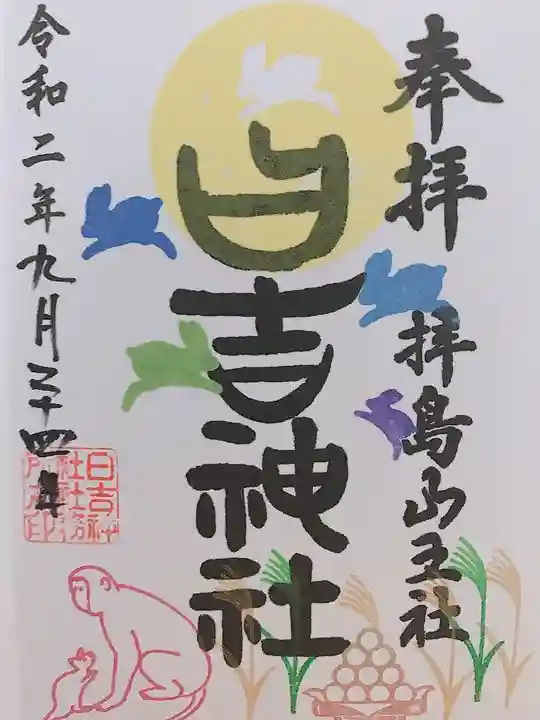 奉拝
拝島山王社
日吉神社
令和二年九月二十四日
日吉神
社社務
所之印